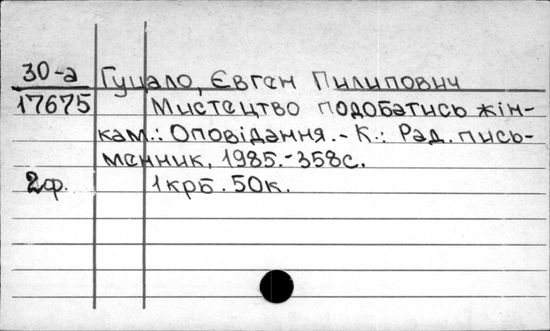 30-а Гуцало, Євген Пилипович
17675 Мистецтво подобатись жін-
кам.: Оповідання.- К.: Рад. пись-
менник, 1985.-358с.
2ф. 1крб. 50к.